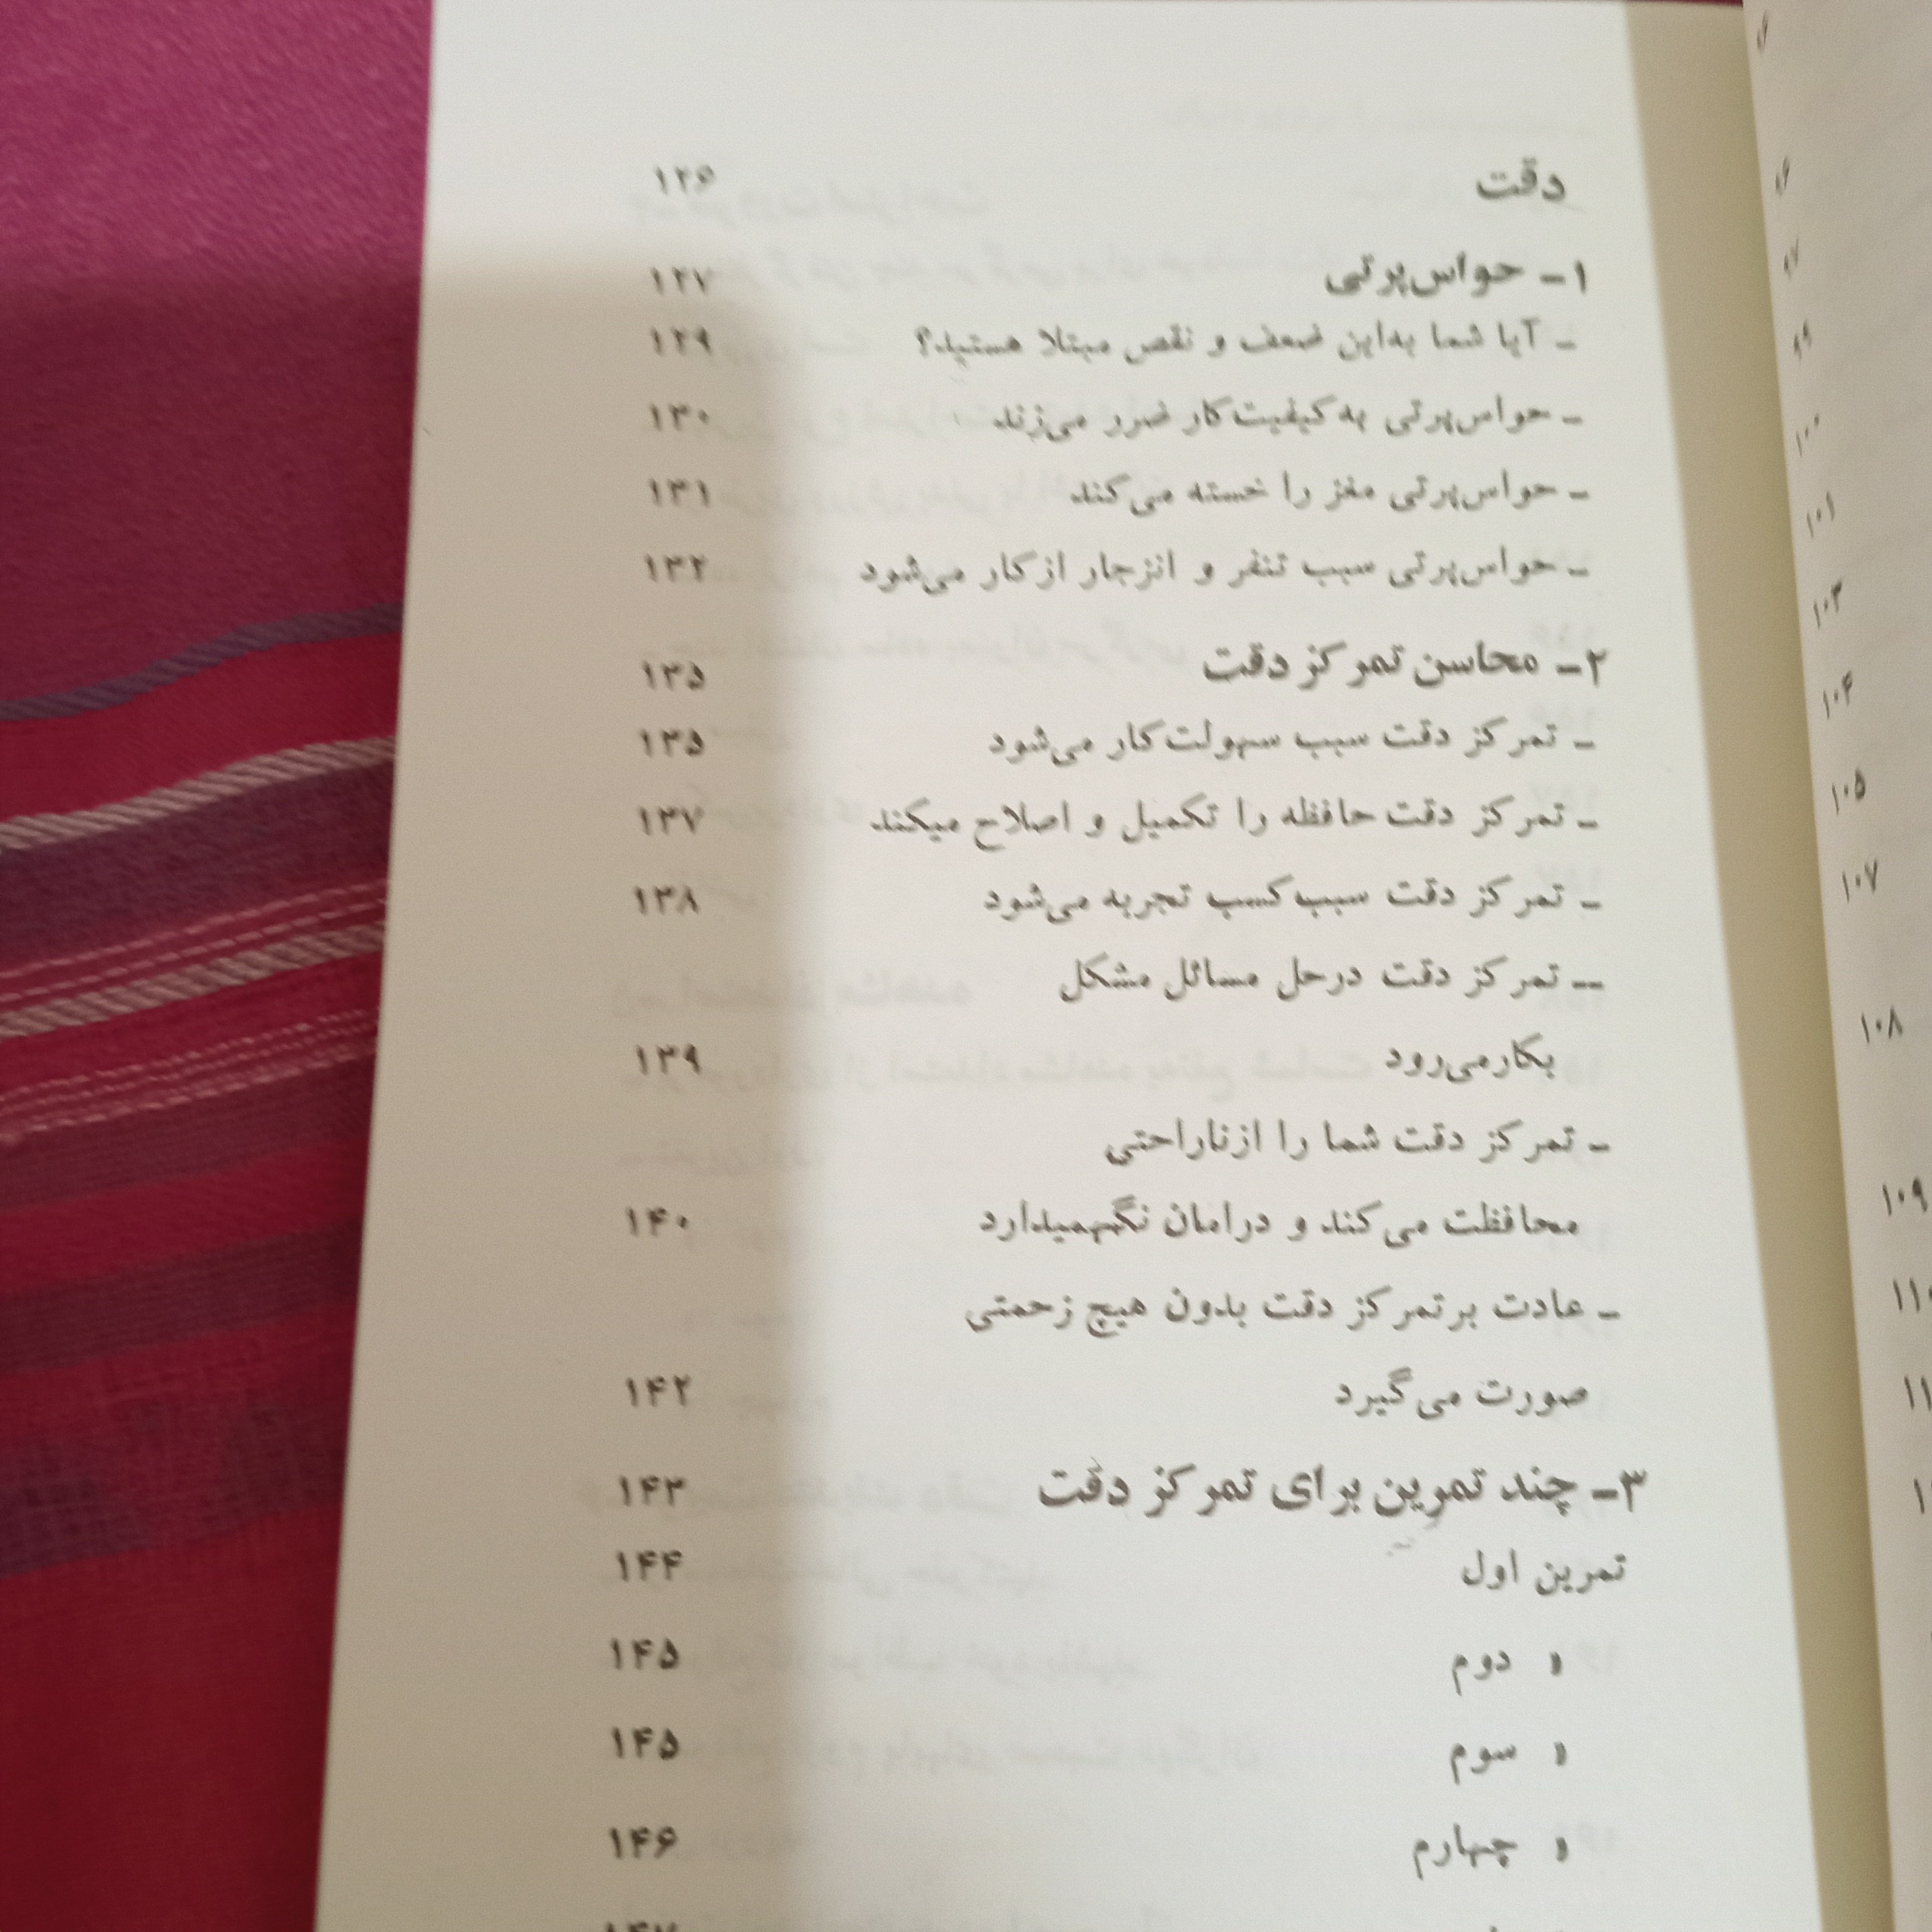 دقت ۱۲۶
۱ـ حواس‌پرتی ۱۲۷
ـ آیا شما به‌این ضعف و نقص مبتلا هستید؟ ۱۲۹
ـ حواس‌پرتی به کیفیت کار ضرر می‌زند ۱۳۰
ـ حواس‌پرتی مغز را خسته می‌کند ۱۳۱
ـ حواس‌پرتی سبب تنفر و انزجار از کار می‌شود ۱۳۲
۲ـ محاسن تمرکز دقت ۱۳۵
ـ تمرکز دقت سبب سهولت کار می‌شود ۱۳۵
ـ تمرکز دقت حافظه را تکمیل و اصلاح میکند ۱۳۷
ـ تمرکز دقت سبب کسب تجربه می‌شود ۱۳۸
ـ تمرکز دقت درحل مسائل مشکل
بکار می‌رود ۱۳۹
ـ تمرکز دقت شما را از ناراحتی
محافظت می‌کند و درامان نگهمیدارد ۱۴۰
ـ عادت برتمرکز دقت بدون هیچ زحمتی
صورت می‌گیرد ۱۴۲
۳ـ چند تمرین برای تمرکز دقت ۱۴۳
تمرین اول ۱۴۴
» دوم ۱۴۵
» سوم ۱۴۵
» چهارم ۱۴۶
۹۷
۹۹
۱۰۰
۱۰۱
۱۰۳
۱۰۴
۱۰۵
۱۰۷
۱۰۸
۱۰۹